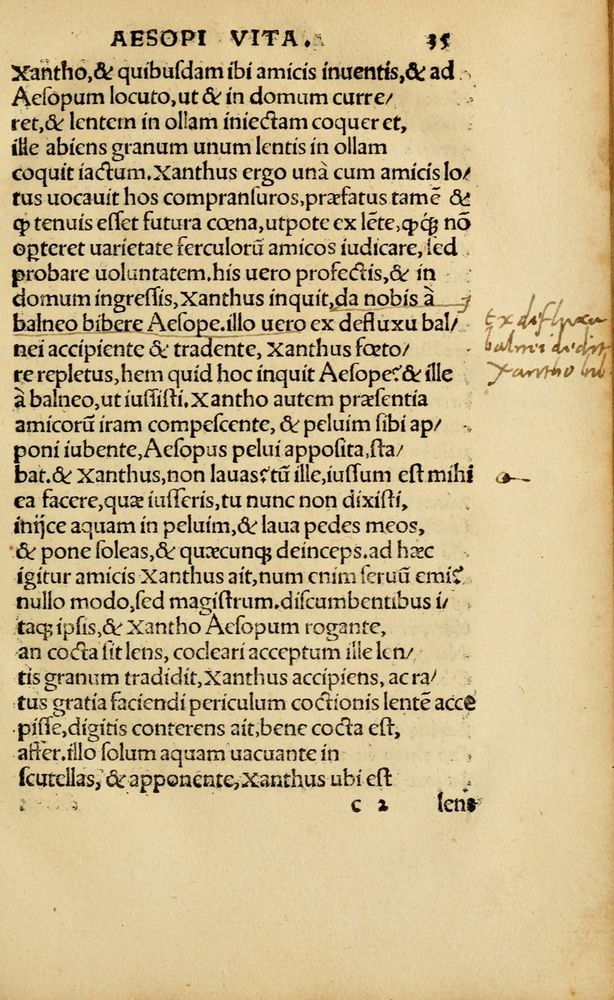 AESOPI VITA. 35
Xantho,& quibusdam ibi amicis inuentis,& ad
Aesopum locuto,ut & in domum curre/
ret,& lentem in ollam iniectam coqueret,
ille abiens granum unum lentis in ollam
coquit iactum.Xanthus ergo unà cum amicis lo/
tus uocauit hos compransuros,præfatus tamē &
ꝙ tenuis esset futura cœna,utpote ex lēte,ꝙꝗ nō
opteret uarietate ferculorū amicos iudicare,sed
probare uoluntatem.his uero profectis,& in
domum ingressis,Xanthus inquit,da nobis à
balneo bibere Aesope.illo uero ex defluxu bal/
nei accipiente & tradente, Xanthus fœto/
re repletus,hem quid hoc inquit Aesope?& ille
à balneo,ut iussisti.Xantho autem præsentia
amicorū iram compescente, & peluim sibi ap/
poni iubente,Aesopus pelui apposita,sta/
bat.& Xanthus,non lauas?tū ille,iussum est mihi
ea facere,quæ iusseris,tu nunc non dixisti,
inijce aquam in peluim,& laua pedes meos,
& pone soleas,& quæcunqꝫ deinceps.ad hæc
igitur amicis Xanthus ait,num enim seruū emi?
nullo modo,sed magistrum.discumbentibus i/
taqꝫ ipsis,& Xantho Aesopum rogante,
an cocta sit lens, cocleari acceptum ille len/
tis granum tradidit,Xanthus accipiens, ac ra/
tus gratia faciendi periculum coctionis lentē acce
pisse,digitis conterens ait,bene cocta est,
affer.illo solum aquam uacuante in
scutellas, & apponente,Xanthus ubi est
c 2 lens
Ex defluxu
balnei dedit
Xantho